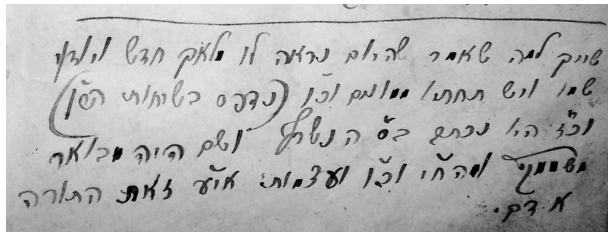 שייך למה שאמר שהיום נראה לו מלאך חדש ויודע
שמו ויש תחתיו ממונים וכו' (נדפס בשיחות הר"ן)
וכ"ז היה נכתב בס' הנשרף ושם היה מבואר
וכו' ועצמות זאת התורה
אדם.